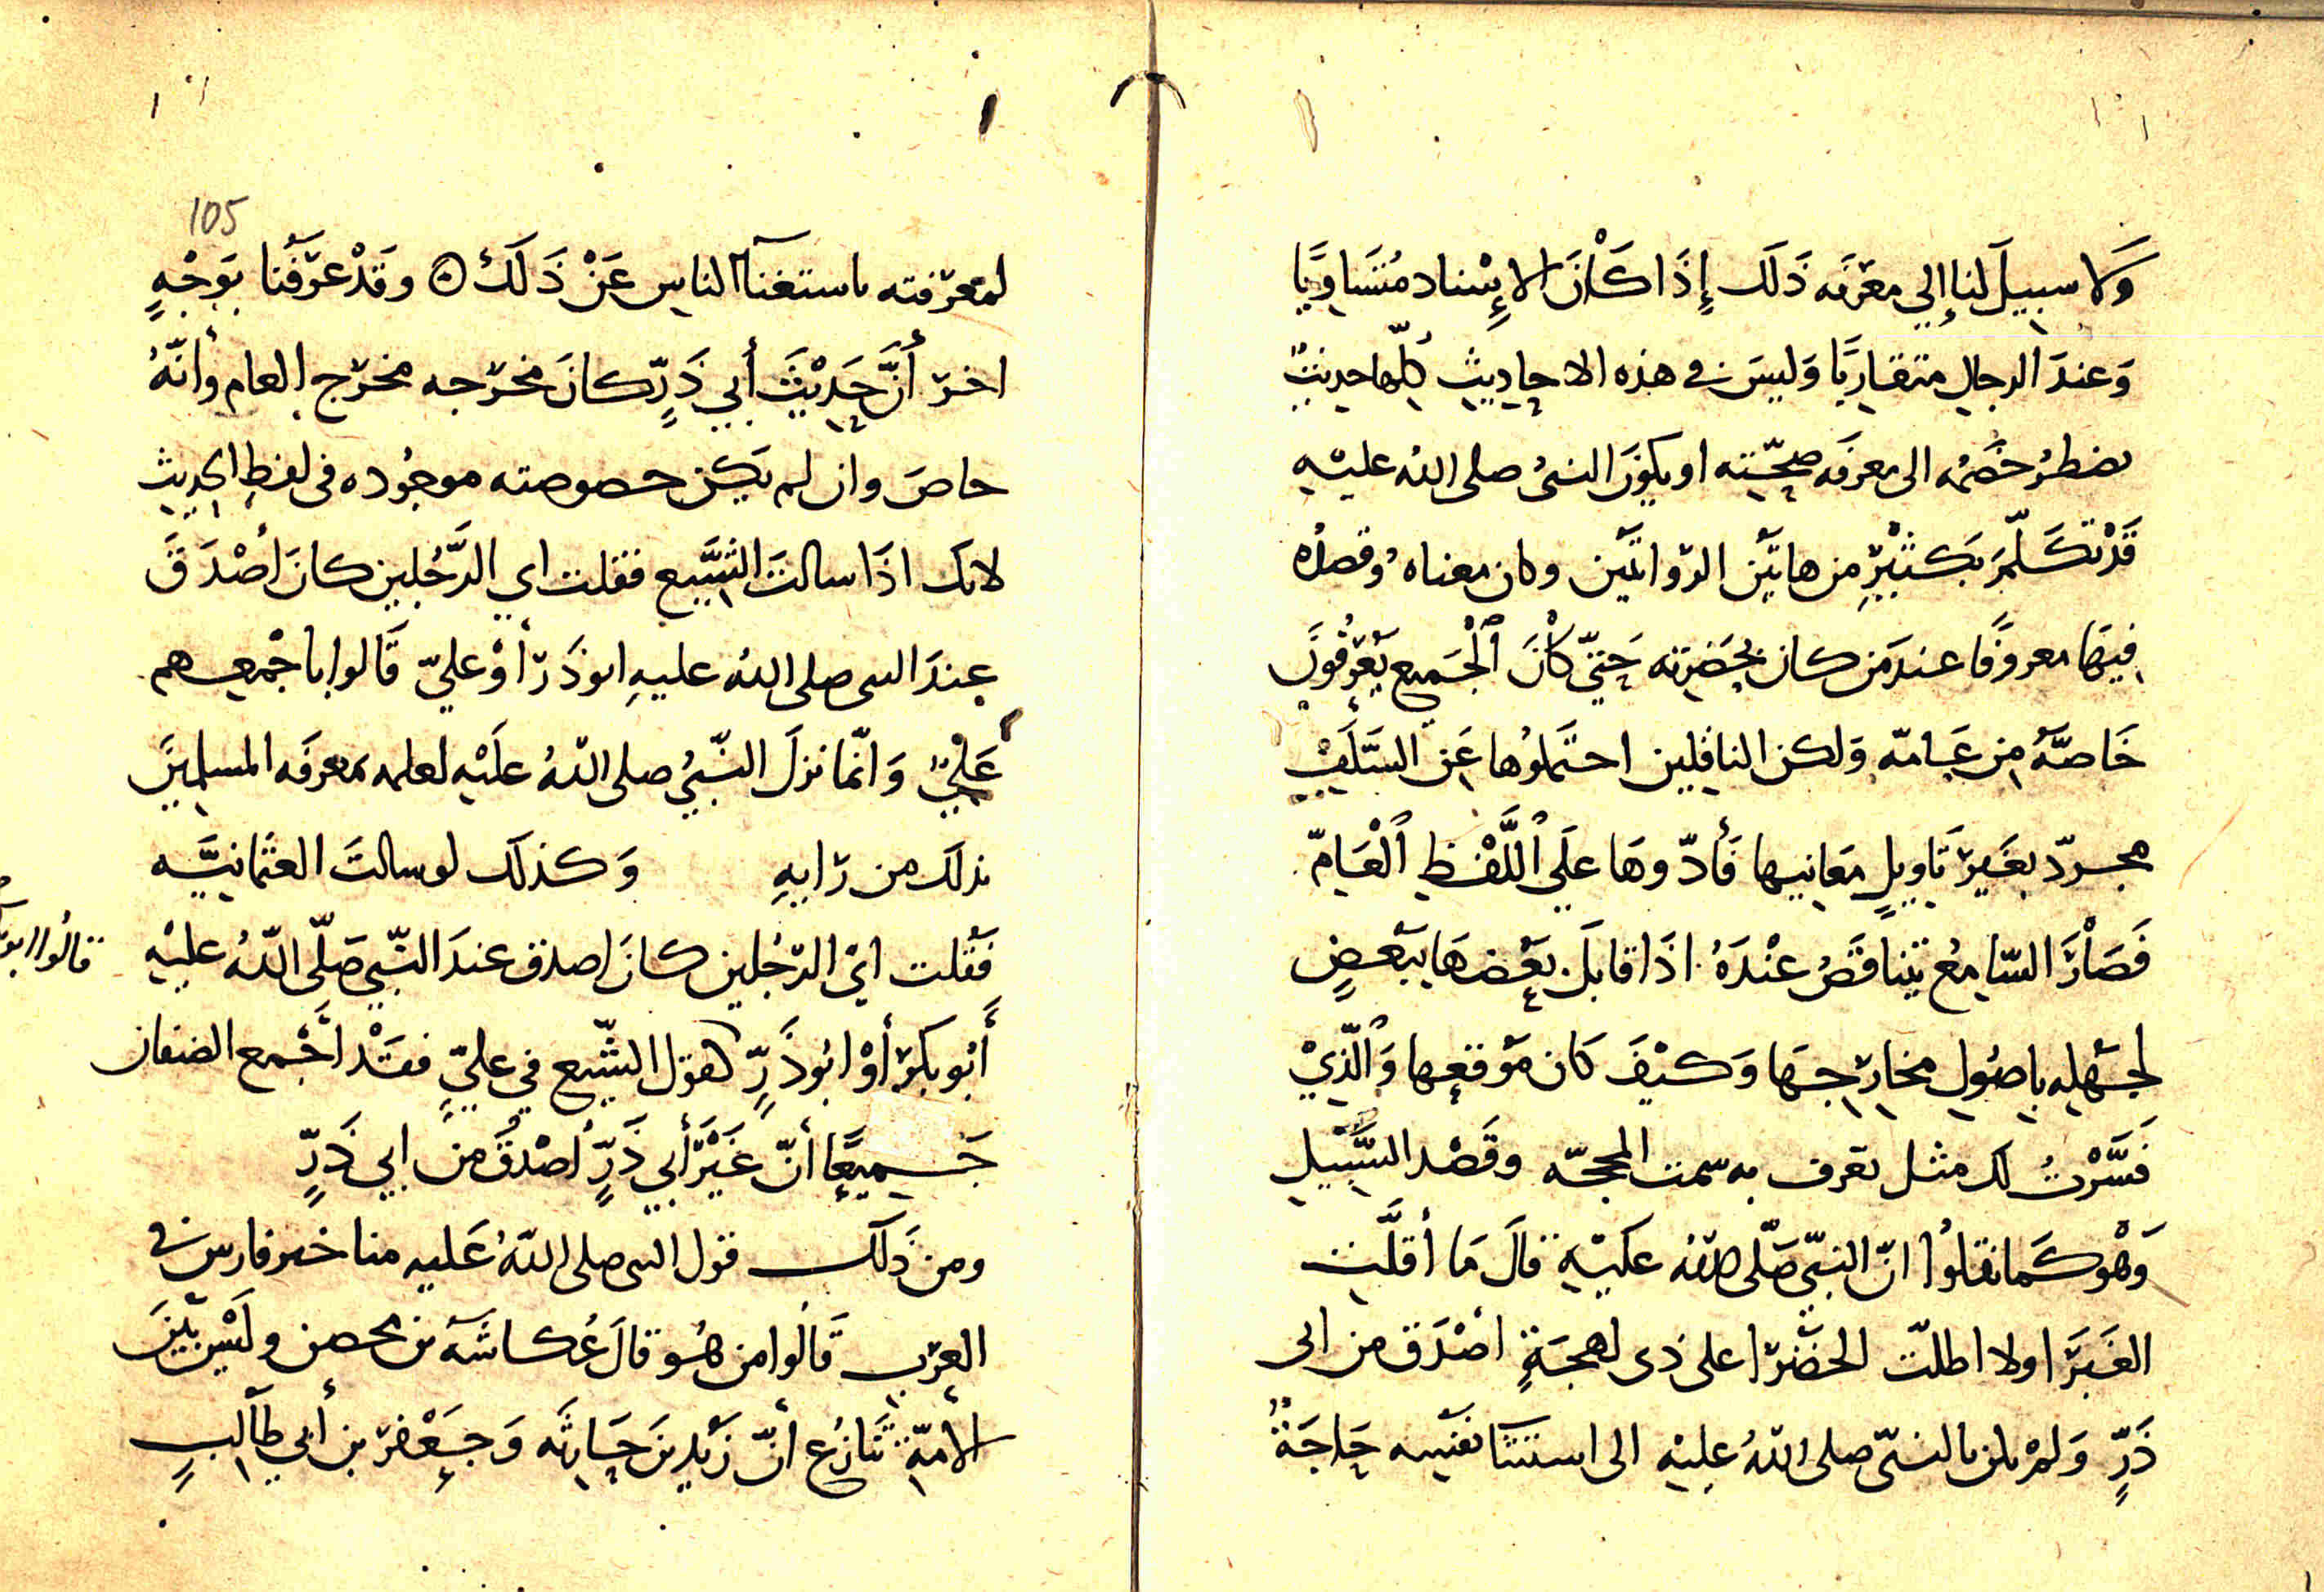 وَلا سبيلَ لنا إلي معرّفَه ذَلَك إِذَا كَانَ الإِسْناد مُتسَاوِيًا
وَعندَ الرجالِ متقاربًا وَليسَ في هذه الاحاديثِ كلّها حديثٌ
يضطرُ خَصْمُه الى معرفَه صِحّته او يكونَ النبيُ صلى اللهُ عليْهِ
قَدْ تكَلّمَ بكَثيْرٍ من هاتَيْن الرّواتَيْن وكان معناه وقصدُه
فيهَا معروفًا عندَ مَن كان بحَضرته حَتيّ كانَ الْجَميع يَعْرفُونَ
خَاصّهُ مِن عَامّه وَلكن الناقلين احتَملُوها عَن السَّلَفِ
مجردّ بغَيرِ تَاويلِ مَعانيها فَأدّوهَا علَي اللَّفْظِ العَامّ
فَصَارَ السّامِعُ تتناقَضُ عنْدَهُ اذَا قابَلَ بَعْضهَا ببَعْضٍ
لجَهْلِه باصُولِ مخارِجهَا وَكيْفَ كَان مَوْقعِها وَالّذِيْ
فَسَّرْتُ لك مثل تعرف به سمت المحجّه وقَصْد السَّبيْلِ
وَهْو كَما نقلُوا انّ النبيّ صَلّى الله عليْهِ قالَ مَا أقلَّت
الغَبرَا ولا اطلّت الخضْرا على ذى لهجَةٍ اصْدَق من ابى
ذَرّ وَلمْ يكن بالنبيّ صلى اللهُ عليْه الى استثنَا نفسِه حَاجَةٌ
105
لمعرّفته باستغنآ الناسِ عَنْ ذَلَكْ ۞ وقَدْ عَرّفَنا بوَجْهٍ
اخرَ أنَّ حَديْثَ أبي ذَرٍّ كانَ مخرَجه مخرَج العام وأنّهُ
خاصَ وان لم يَكن خصوصته موجُوده في لفظِ الحديث
لانك اذَا سالتَ الشّيَع فقلت اي الرَّجُلين كانَ أصْدَقَ
عندَ النبي صلى اللهُ عليهِ ابو ذَرّ أوْ عليّ قَالوا باجْمعهم
عَليٌّ وَانّما نزلَ النّبيُ صلى اللهُ عليْه لعلمه بمعرفَه المسلمينَ
بذلكَ من رَايهِ وَكذلَك لو سالتَ العثمانيَّه
فَقلت ايّ الرّجُلين كانَ اصدق عندَ النّبيّ صَلّى اللهُ عليْهِ
قالُوا ابو
أَبُو بكرٍ أوْ ابُو ذَرٍّ كقول الشّيَع في عليٍّ فقَدْ أجْمع الصنفان
جَميعًا أنّ غَيْرَ أبي ذَرٍّ أصْدَقُ من ابي ذَرٍّ
ومن ذَلَك قول النبى صلى اللهُ عَليه منا خير فارس في
العرَب قَالُوا من هُو قالَ عُكاشَه بن محصن ولَيْس بَيْنَ
الأمّة تَنَازُع أنّ زَيْد بنَ حَارِثَه وَجَعْفر بن أبي طالبٍ